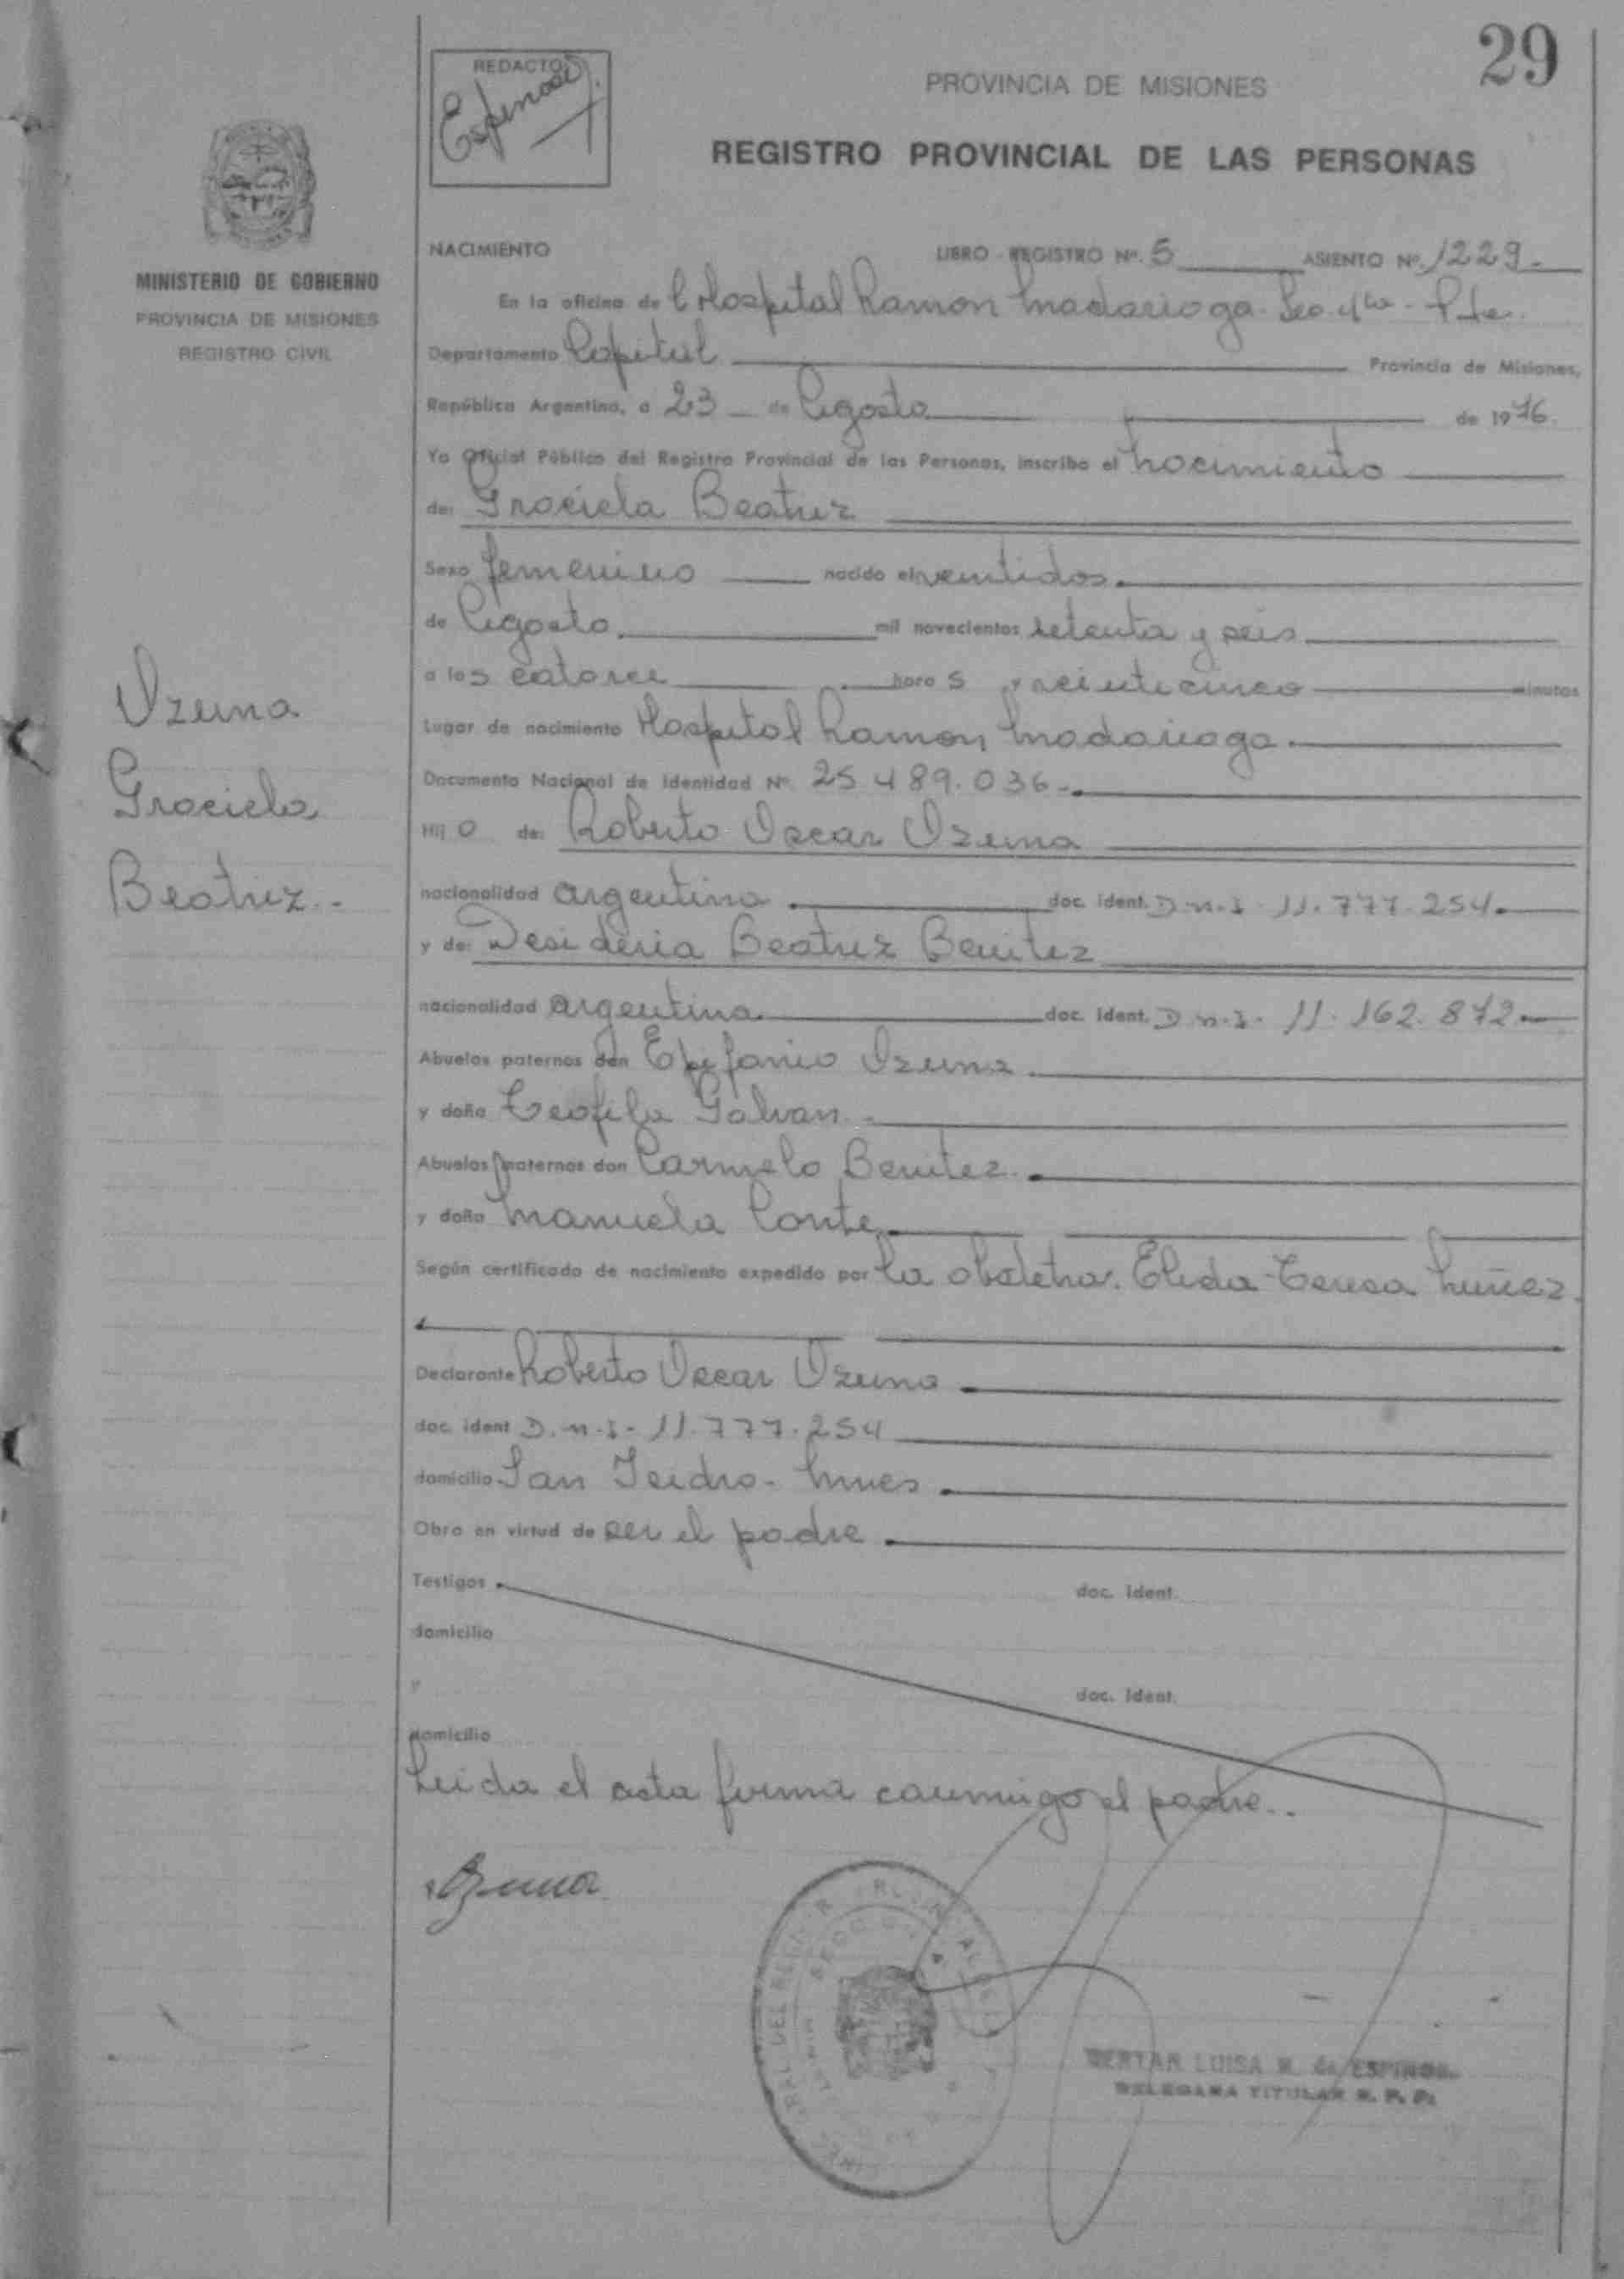 29
REDACTOR
PROVINCIA DE MISIONES
REGISTRO PROVINCIAL DE LAS PERSONAS
MINISTERIO DE GOBIERNO
PROVINCIA DE MISIONES
REGISTRO CIVIL
NACIMIENTO LIBRO - REGISTRO Nº. 5 ASIENTO Nº. 1229.-
En la oficina de Hospital Ramon Madariaga
Departamento Capital Provincia de Misiones,
República Argentina, a 23 de Agosto de 1976.
Yo Oficial Público del Registro Provincial de las Personas, inscribo el nacimiento
de: Graciela Beatriz
Sexo femenino nacido el ventidos.
de Agosto. mil novecientos setenta y seis
a las catorce horas y veinticinco minutos
Lugar de nacimiento Hospital Ramon Madariaga.
Documento Nacional de Identidad Nº 25.489.036.-
Hijo de: Roberto Oscar Ozuna
nacionalidad argentina. doc. ident. D.n.I. 11.777.254.
y de: Desideria Beatriz Benitez
nacionalidad argentina. doc. ident. D.n.I. 11.162.872.
Abuelos paternos don Epifanio Ozuna.
y doña Teofila Galvan.
Abuelos maternos don Carmelo Benitez.
y doña Manuela Conte.
Según certificado de nacimiento expedido por la obstetra. Elida Teresa Nuñez.
Declarante Roberto Oscar Ozuna
doc. ident D.n.I. 11.777.254
domicilio San Isidro.
Obra en virtud de ser el padre
Testigos doc. ident.
domicilio
y doc. ident.
domicilio
Leida el acta firma conmigo el padre..
Ozuna
Ozuna
Graciela
Beatriz.-
LUISA M. de ESPINOSA
DELEGADA TITULAR R. P. P.